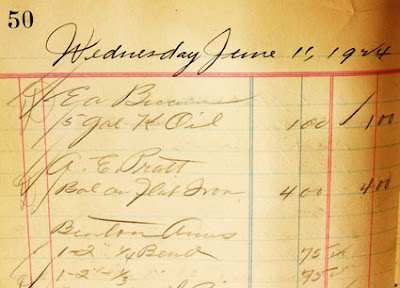 50
Wednesday June 11, 1924
Ed
5 Gal K Oil 1 00 1 00
A. E. Pratt
Bal on Flat Iron 4 00 4 00
Benton Amos
1-2" 1/4 Bend 75
1-2" 75